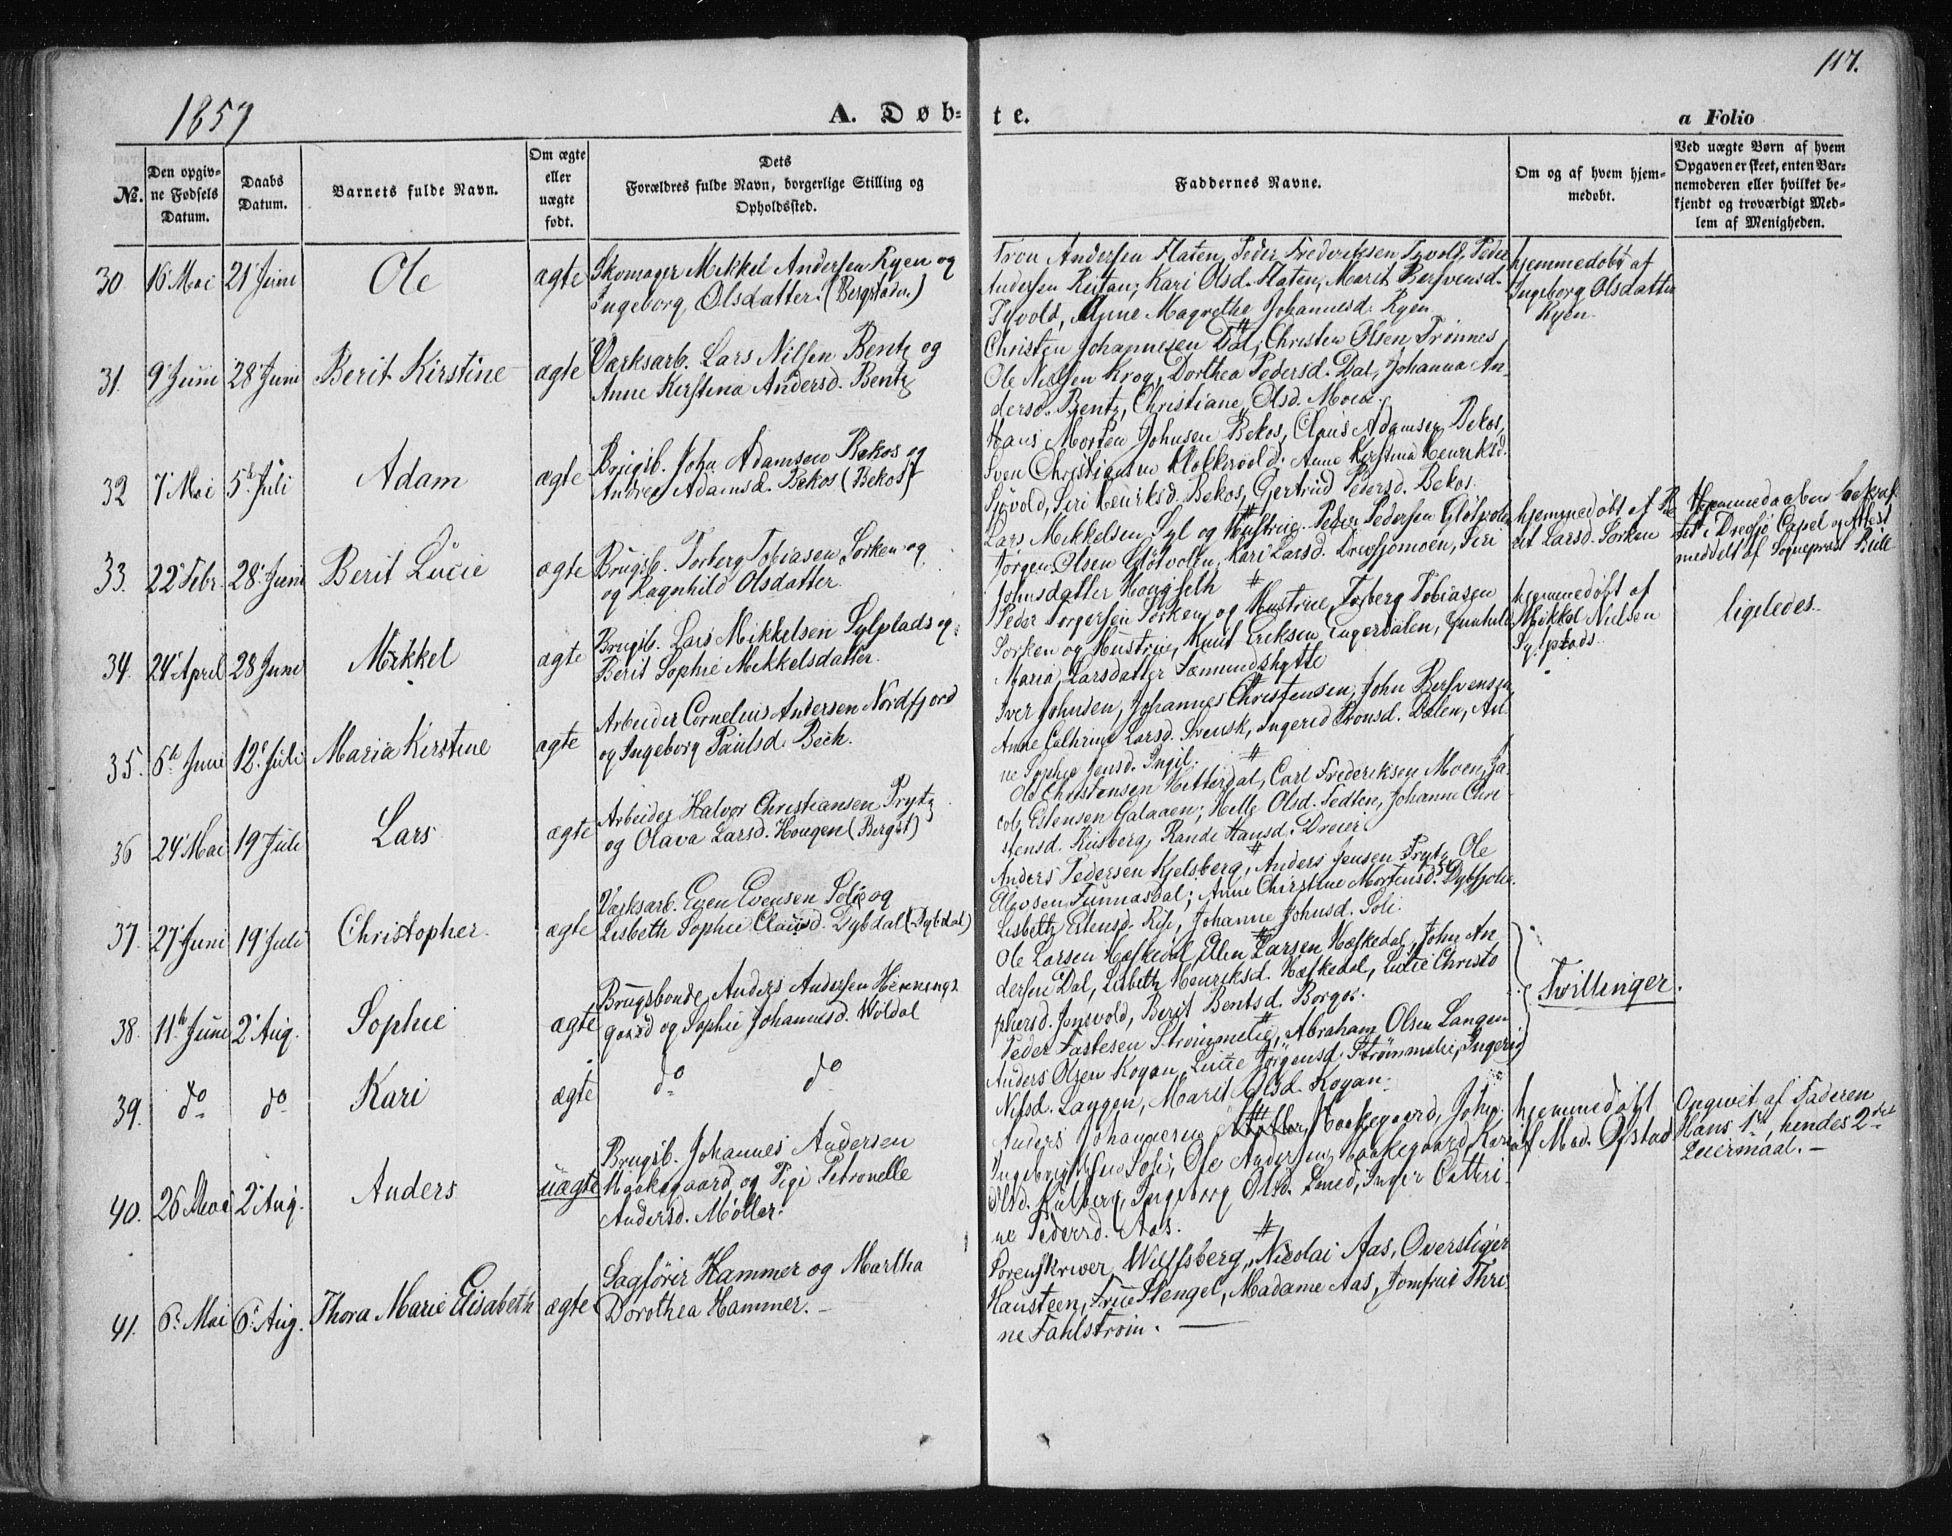 117.
1857
A. Døb-
te.
a Folio
No.
Den opgiv-
ne Fødsels
Datum.
Daabs
Datum.
Barnets fulde Navn.
Om ægte
eller
uægte
født.
Dets
Forældres fulde Navn, borgerlige Stilling og
Opholdssted.
Faddernes Navne.
Om og af hvem hjem-
medøbt.
Ved uægte Børn af hvem
Opgaven er skeet, enten Bar-
nemoderen eller hvilket be-
kjendt og troværdigt Med-
lem af Menigheden.
30. 16 Mai 21 Juni Ole ægte
Skomager Mikkel Andersen Ryen og
Ingeborg Olsdatter. (Bergstaden.)
Tron Andersen Flaten, Peder Fredriksen Tyvold, Peder
Andersen Reitan, Kari Olsd. Flaten, Marit Bersvensd.
Tyvold, Anne Magrethe Johannesd. Ryen
hjemmedøbt af
Ingeborg Olsdatter
Ryen.
31. 9 Juni 28 Juni Berit Kirstine ægte
Værksarb. Lars Nilsen Bentz og
Anne Kerstina Andersd. Bentz
Christen Johannesen Dal, Christen Olsen Trønnes,
Ole Nilsen Krog, Dorthea Pedersd. Dal, Johanna An-
dersd. Bentz, Christiane Olsd. Moen.
32 7 Mai 5 Juli Adam ægte
Brugsb. John Adamsen Bekos og
Andrea Adamsd. Bekos (Bekos)
Hans Morten Johnsen Bekos, Claus Adamsen Bekos,
Sven Christiansen Klokkervold, Anne Kerstina Henriksd.
Sjøvold, Siri Henriksd. Bekos, Gertrud Pedersd. Bekos.
33. 22 Febr. 28 Juni Berit Lucie ægte
Brugsb. Torberg Tobiasen Sorken og
og Ragnhild Olsdatter.
Lars Mikkelsen Syl og Hustrue, Peder Pedersen Gløtvolen
Jørgen Olsen Gløtvolen, Kari Larsd. Drevsjømoen, Siri
Johnsdatter Hougseth
hjemmedøbt af Be
rit Larsd. Sorken
Hjemmedaaben bekræf
tet i Drevsjø Capel og Attest
meddelt af Sognepræst Bull
34. 24 April 28 Juni Mikkel ægte
Brugsb. Lars Mikkelsen Sylplads og
Berit Sophie Mikkelsdatter.
Peder Torgersen Sorken og Hustrue, Torberg Tobiasen
Sorken og Hustrue, Knut Eriksen Engerdalen, Gunhild
Maria Larsdatter Femundshytte
hjemmedøbt af
Mikkel Nielsen
Sylplads.
ligeledes.
35. 6te Juni 12 Juli Maria Kirstine ægte
Arbeider Cornelius Andersen Nordfjord
og Ingeborg Paulsd. Bech.
Iver Johnsen, Johannes Christensen, John Bersvensen
Anne Cathrine Larsd. Svensk, Ingerid Tronsd. Dalen, An-
ne Sophie Jensd. Ingil.
36 24 Mai 19 Juli Lars ægte
Arbeider Halvor Christiansen Prytz
og Olava Larsd. Hougen (Bergst)
Ole Christensen Hitterdal, Carl Frederiksen Moen, Ja-
cob Estensen Galaaen, Helle Olsd. Tedten, Johanne Chri-
stensd. Riisberg, Rande Hansd. Dreier
37. 27 Juni 19 Juli Christopher ægte
Værksarb. Even Evensen Solie og
Lisbeth Sophie Clausd. Dybdal (Dybdal)
Anders Pedersen Kjelsberg, Anders Jensen Prytz, Ole
Elevsen Funnasdal; Anne Christine Mortensd. Dybsjølie.
Lisbeth Estensd. Rise, Johanne Johnsd. Soli.
38. 11te Juni 2 Aug. Sophie ægte
Brugsbonde Anders Andersen Hennings
gaard og Sophie Johannesd. Woldal
Ole Larsen Hæskedal, Elen Larsen Hæskedal, John An
dersen Dal, Lisbeth Henriksd. Hæskedal, Lucie Christo
phersd. Jonsvold, Berit Bentsd. Borgos.
Tvillinger.
39. do do Kari ægte do do
Peder Fastesen Strømmelie, Abraham Olsen Langen
Anders Olsen Kogan, Lucie Jørgensd. Strømmelie, Ingerid
Nilsd. Langen, Marit Olsd. Kogan.
40. 26 Mai 2 Aug. Anders uægte
Brugsb. Johannes Andersen
Haakegaard og Pige Petronelle
Andersd. Møller.
Anders Johannesen Haakegaard, John
Ingebrigtsen Soli, Ole Andersen Haakegaard, Kari
Olsd. Kulberg, Ingeborg Olsd. Lined, Inger Cathri-
ne Pedersd. Aas.
hjemmedøbt
af Mad. Ofstad
Ongivet af Faderen
Hans 1ste, hendes 2det
Leiermaal.
41. 6 Mai 6 Aug. Thora Marie Elisabeth ægte
Sagfører Hammer og Martha
Dorothea Hammer.
Sorenskriver Wulfsberg, Nicolai Aas, Overstiger
Hansteen, Frue Stengel, Madame Aas, Jomfrue Thri
ne Fahlstrøm.